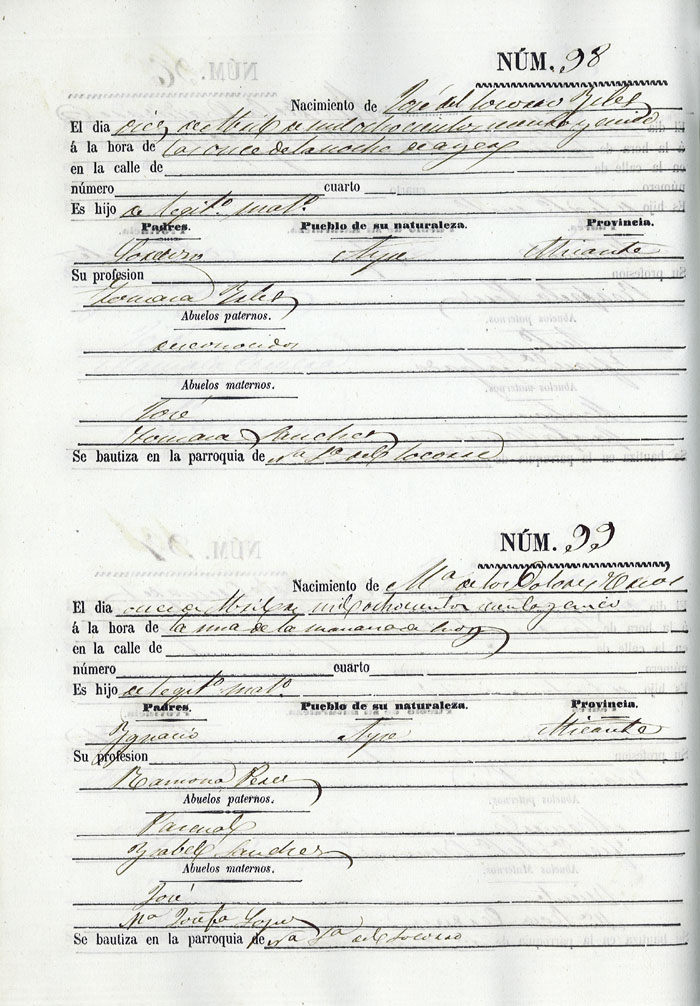 NÚM. 98
Nacimiento de José del Socorro
El dia diez de Abril de mil ochocientos cincuenta y cinco
á la hora de las once de la noche de ayer
en la calle de
número cuarto
Es hijo de legit.º mat.º
Padres. Pueblo de su naturaleza. Provincia.
Aspe Alicante
Su profesion
Tomasa
Abuelos paternos.
desconocidos
Abuelos maternos.
José
Tomasa Sanchez
Se bautiza en la parroquia de N.ª S.ª del Socorro
NÚM. 99
Nacimiento de M.ª de los Dolores
El dia once de Abril de mil ochocientos cincuenta y cinco
á la hora de la una de la mañana de hoy
en la calle de
número cuarto
Es hijo de legit.º mat.º
Padres. Pueblo de su naturaleza. Provincia.
Ygnacio Aspe Alicante
Su profesion
Ramona Perez
Abuelos paternos.
Pascual
Ysabel Sanchez
Abuelos maternos.
José
M.ª Josefa Lopez
Se bautiza en la parroquia de N.ª S.ª del Socorro